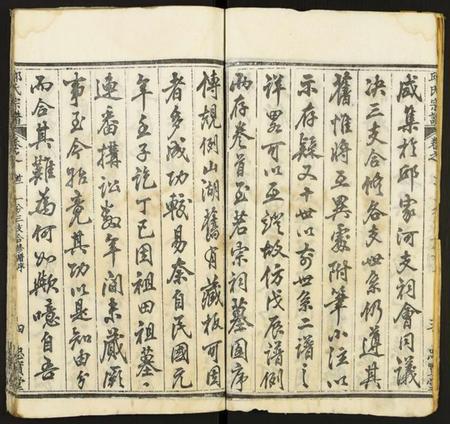 咸集於邱家河支祠會同議
決三支合修各支世系仍遵其
舊惟將互異處附筆小注以
示存疑又十世以前世系二譜之
詳畧可以互證故仿戊辰譜例
兩存卷首至若宗祠墓圖序
傳規例山湖舊有藏板可因
者多成功較易奈自民國元
年壬子訖丁巳因祖田祖墓
連番搆訟數年間未蕆厥
事至今始竟其功以是知由分
而合其難為何如噫自吾
邱氏宗譜
卷之
一分三支合修譜序
四